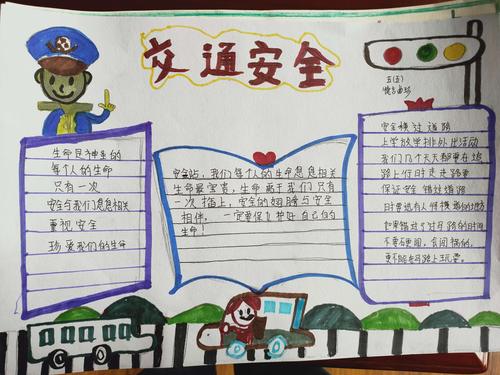 交通安全
五(五)
生命是神圣的
每个人的生命
只有一次
安全与我们息息相关
重视安全
珍爱我们的生命
安全站，我们每个人的生命息息相关
生命最宝贵，生命属于我们只有
一次 插上，安全的翅膀与安全
相伴， 一定要保护好自己的
生命！
安全横过道路
上学放学排外出活动
我们几天天都要在
路上行时走走路要
保证安全 错过道路
时要选有人行横道的地方
如果错过了过马路的时间
不要硬闯，
更不能马路上玩耍。